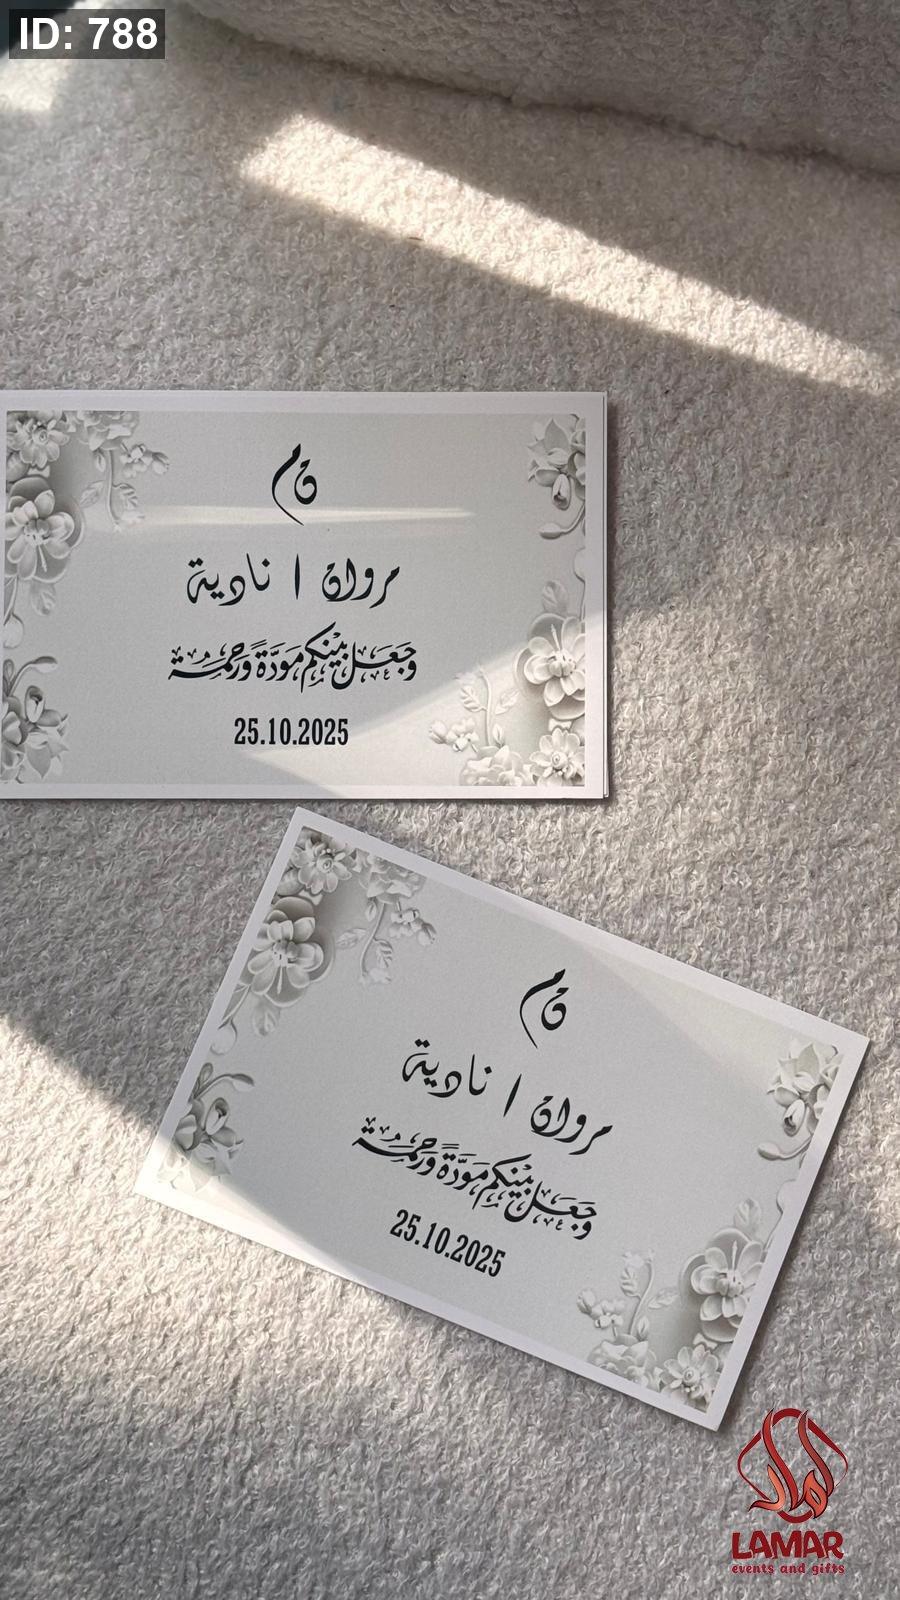 ID: 788
م ن
مروان | نادية
وَجَعَلَ بَيْنَكُم مَوَدَّةً وَرَحْمَةً
25.10.2025
م ن
مروان | نادية
وَجَعَلَ بَيْنَكُم مَوَدَّةً وَرَحْمَةً
25.10.2025
لمار
LAMAR
events and gifts